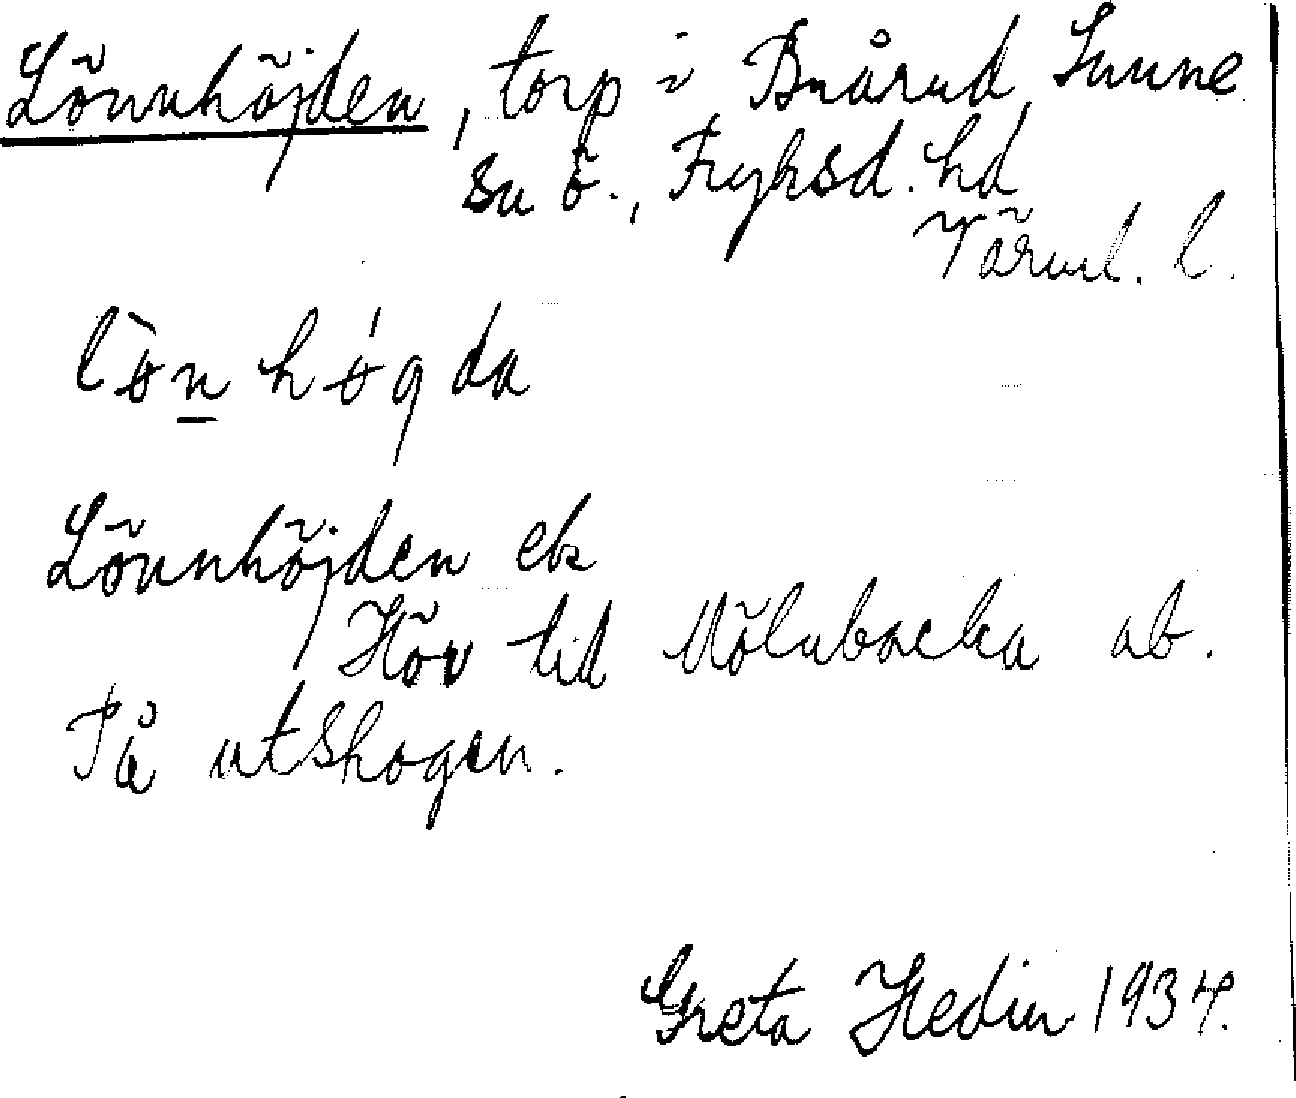 Lönnhöjden, torp i Bråred, Sunne
sn ö., Fryksd. hd
Värml. l.
lø̀n hǿgda
Lönnhöjden ek
Hör till Mölnbacka ab.
På utskogen.
Greta Hedin 1934.